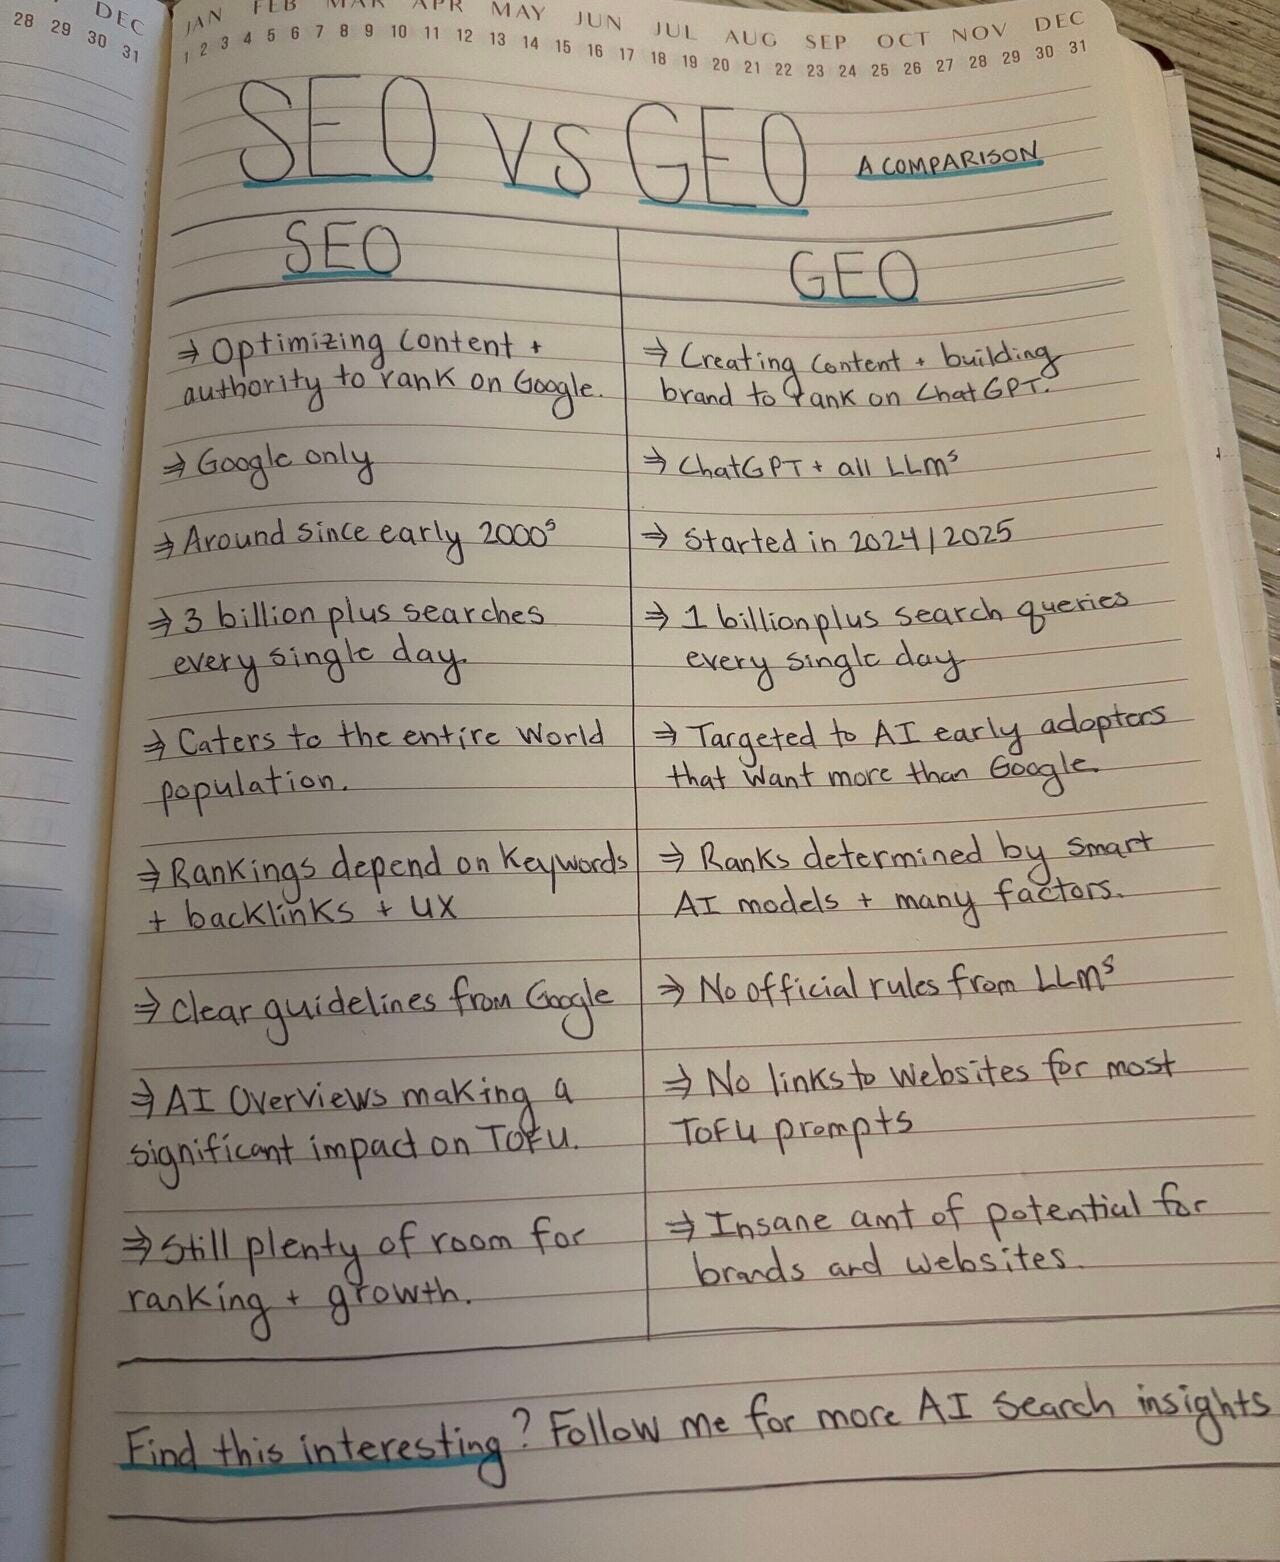 DEC
28 29 30 31
JAN FEB MAR APR MAY JUN JUL AUG SEP OCT NOV DEC
1 2 3 4 5 6 7 8 9 10 11 12 13 14 15 16 17 18 19 20 21 22 23 24 25 26 27 28 29 30 31
SEO VS GEO A COMPARISON
SEO
⇒ Optimizing content +
authority to rank on Google.
⇒ Google only
⇒ Around since early 2000s
⇒ 3 billion plus searches
every single day.
⇒ Caters to the entire world
population.
⇒ Rankings depend on keywords
+ backlinks + UX
⇒ Clear guidelines from Google
⇒ AI Overviews making a
significant impact on TOFU.
⇒ Still plenty of room for
ranking + growth.
GEO
⇒ Creating content + building
brand to rank on ChatGPT.
⇒ ChatGPT + all LLMs
⇒ Started in 2024/2025
⇒ 1 billion plus search queries
every single day
⇒ Targeted to AI early adopters
that want more than Google.
⇒ Ranks determined by smart
AI models + many factors.
⇒ No official rules from LLMs
⇒ No links to websites for most
TOFU prompts
⇒ Insane amt of potential for
brands and websites.
Find this interesting? Follow me for more AI Search insights